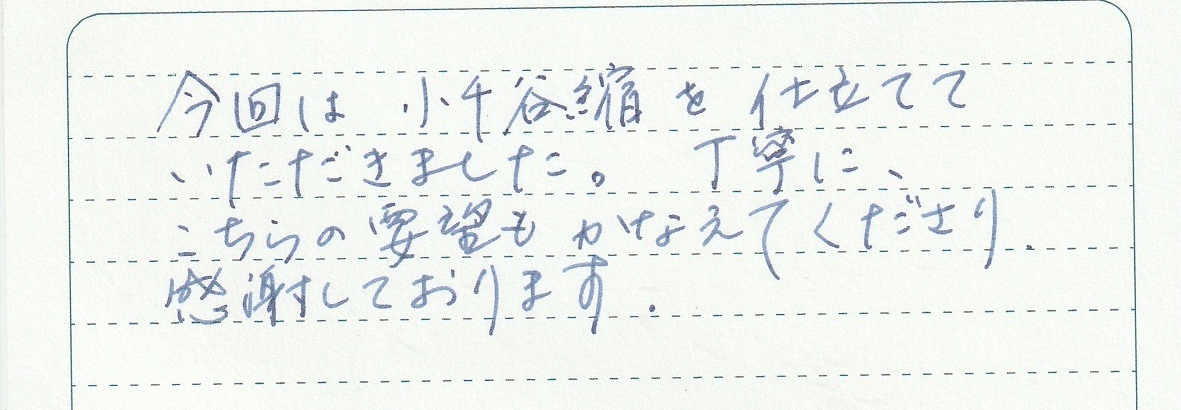 今回は 小千谷縮を仕立てて
いただきました。 丁寧に、
こちらの要望もかなえてくださり.
感謝しております.